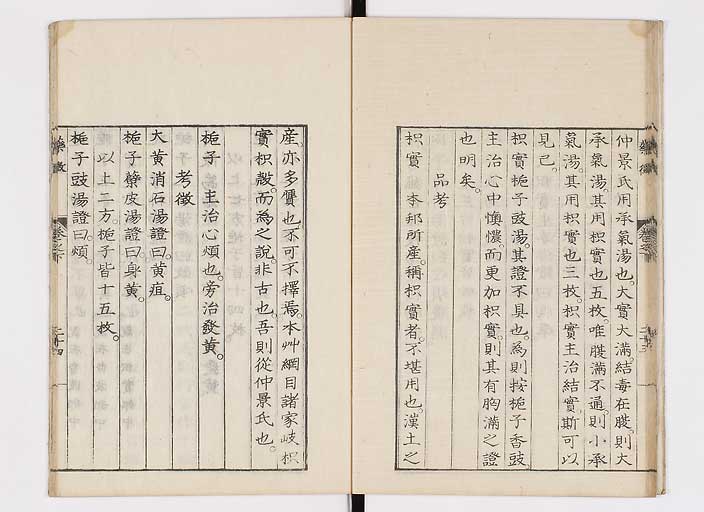 仲景氏用承氣湯也。大實大滿。結毒在腹。則大
承氣湯。其用枳實也五枚。唯腹滿不通。則小承
氣湯。其用枳實也三枚。枳實主治結實。斯可以
見已。
枳實梔子豉湯。其證不具也。爲則按。梔子香豉。
主治心中懊憹。而更加枳實。則其有胸滿之證
也明矣。
品考
枳實 本邦所產。稱枳實者。不堪用也。漢土之
產。亦多贋也。不可不擇焉。本艸綱目。諸家岐枳
實枳殼。而爲之說。非古也。吾則從仲景氏也。
梔子 主治心煩也。旁治發黃。
考徵
大黃消石湯證曰。黃疸。
梔子蘗皮湯證曰。身黃。
以上二方。梔子皆十五枚。
梔子豉湯證曰。煩。
藥徵
卷之下